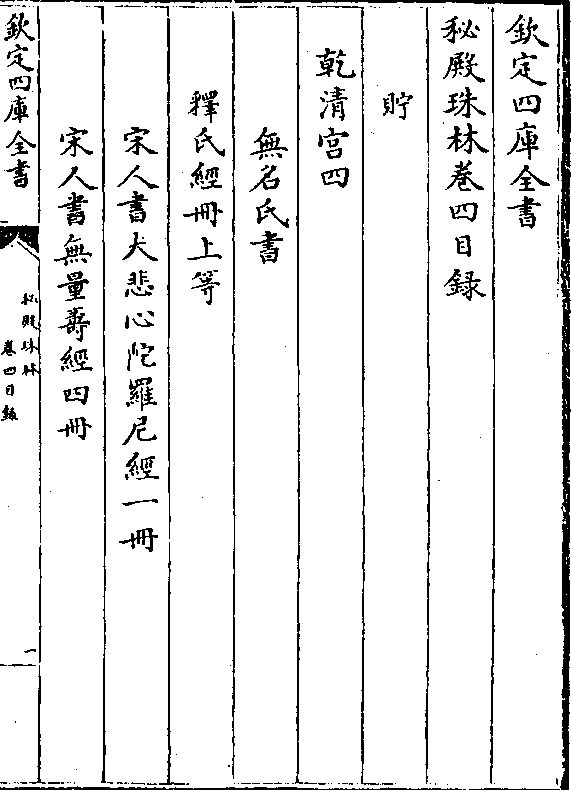 欽定四庫全書
秘殿珠林卷四目録
貯
乾清宫四
無名氏書
釋氏經冊上等
宋人書大悲心陀羅尼經一冊
宋人書無量壽經四冊
欽定四庫全書
秘殿珠林
卷四目録
一